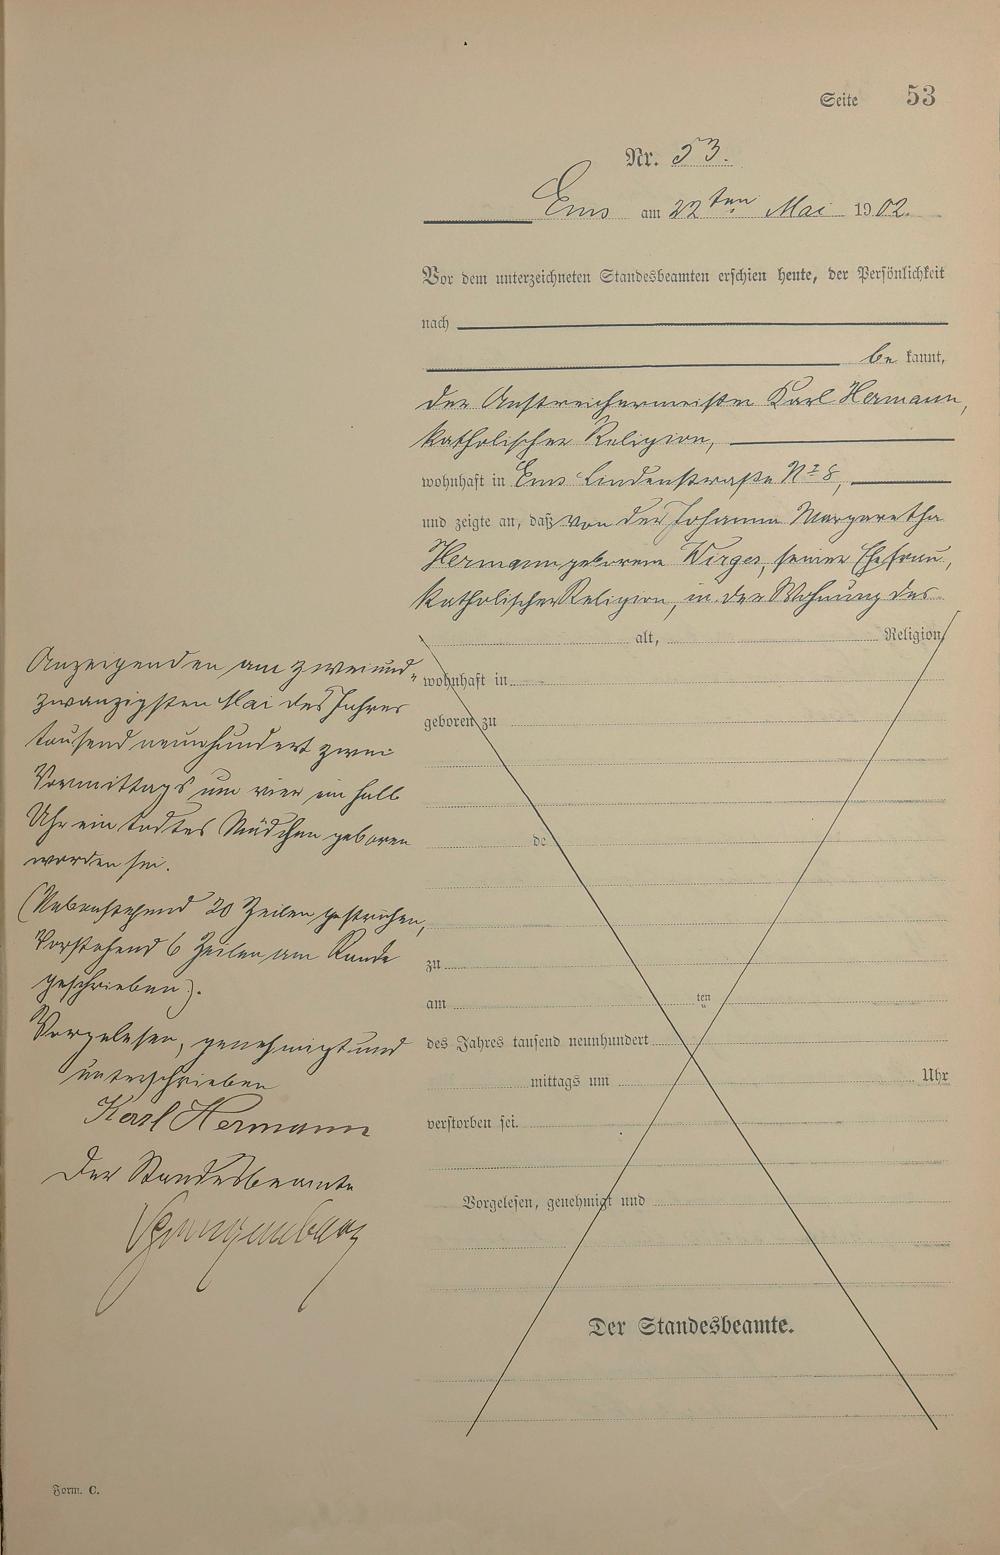 Seite 53
Nr. 53.
Ems am 22ten Mai 1902.
Vor dem unterzeichneten Standesbeamten erschien heute, der Persönlichkeit
nach
be kannt,
der Anstreichermeister Karl Hermann,
katholischer Religion,
wohnhaft in Ems Lindenstraße No 8,
und zeigte an, daß von der Johanna Margaretha
Hermann geborene Wirges, seiner Ehefrau,
katholischer Religion, in der Wohnung des
alt, Religion,
wohnhaft in
geboren zu
de
zu
am ten
des Jahres tausend neunhundert
mittags um Uhr
verstorben sei.
Vorgelesen, genehmigt und
Der Standesbeamte.
Anzeigenden am zweiund-
zwanzigsten Mai des Jahres
tausend neunhundert zwei
Vormittags um vier ein halb
Uhr ein todtes Mädchen geboren
worden sei.
(Nebenstehend 20 Zeilen gestrichen,
Vorstehend 6 Zeilen am Rande
geschrieben).
Vorgelesen, genehmigt und
unterschrieben
Karl Hermann
Der Standesbeamte
Form. C.